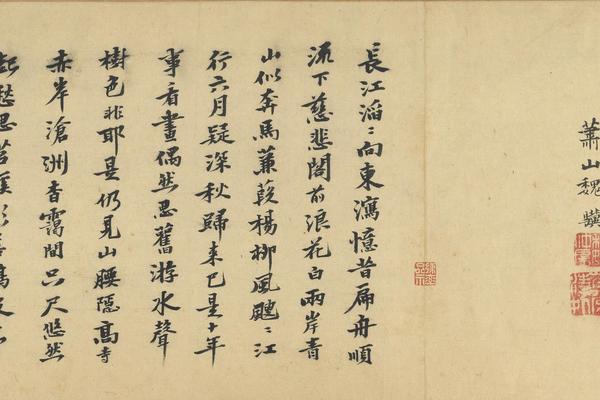 蕭山魏驥
長江滔〻向東瀉憶昔扁舟順
流下慈悲閣前浪花白兩岸青
山似奔馬蒹葭楊柳風颼〻江
行六月疑深秋歸來已是十年
事看畫偶然思舊游水聲
樹色非耶是仍見山腰隱高寺
赤岸滄洲杳靄間只尺悠然
起愁思苕溪